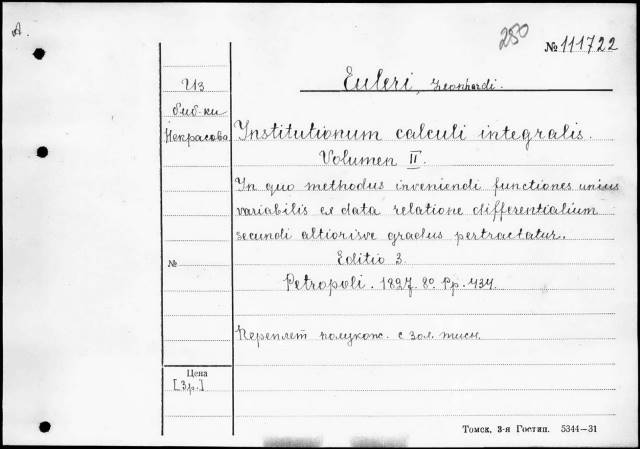 А.
250
№ 111722
Euleri, Leonhardi.
Из
биб-ки
Некрасова
Institutionum calculi integralis.
Volumen II.
In quo methodus inveniendi functiones unius
variabilis ex data relatione differentialium
secundi altiorisve gradus pertractatur.
Editio 3.
№
Petropoli. 1827. 8º. Pp. 434.
Переплет полукож. с зол. тисн.
Цена
[3р.]
Томск, 3-я Гостип. 5344—31